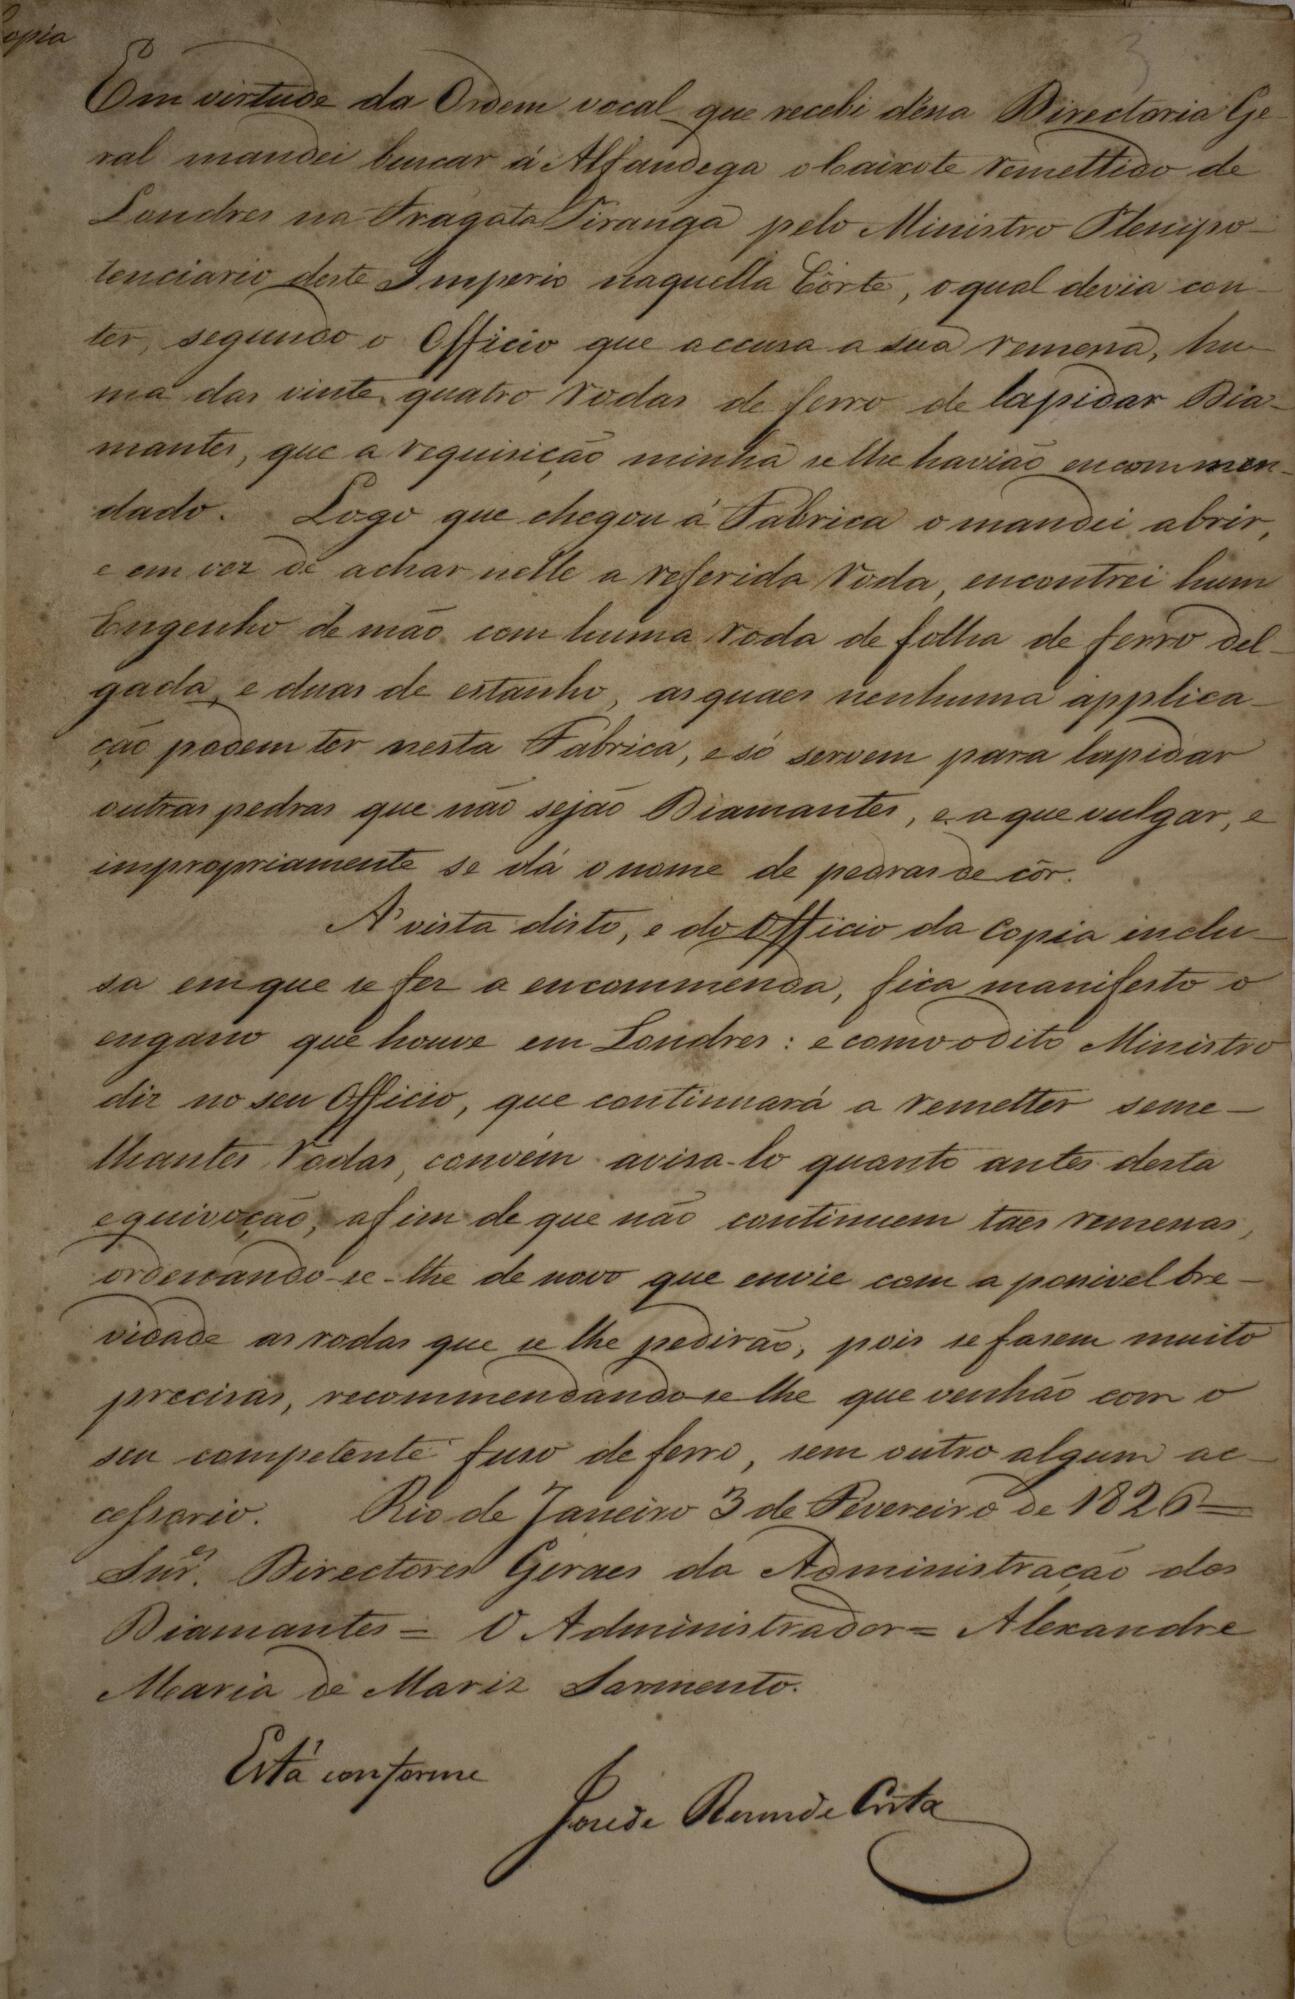 Copia
3
Em virtude da Ordem vocal que recebi dessa Directoria Ge-
ral mandei buscar á Alfandega o Caixote remettido de
Londres na Fragata Piranga pelo Ministro Plenipo-
tenciario deste Imperio naquella Côrte, o qual devia con-
ter, segundo o Officio que accusa a sua remessa, hu-
ma das vinte quatro rodas de ferro de lapidar Dia-
mantes, que a requisição minha se lhe havião encommen-
dado. Logo que chegou á Fabrica o mandei abrir,
e em vez de achar nelle a referida roda, encontrei hum
Engenho de mão com huma roda de folha de ferro del-
gada, e duas de estanho, as quaes nenhuma applica-
ção podem ter nesta Fabrica, e só servem para lapidar
outras pedras que não sejão Diamantes, e a que vulgar, e
impropriamente se dá o nome de pedras de côr.
A' vista disto, e do Officio da copia inclu-
sa em que se fez a encommenda, fica manifesto o
engano que houve em Londres: e como o dito Ministro
diz no seu Officio, que continuará a remetter seme-
lhantes rodas, convém avisa-lo quanto antes desta
equivoção, afim de que não continuem taes remessas,
ordenando-se-lhe de novo que envie com a possivel bre-
vidade as rodas que se lhe pedirão, pois se fasem muito
precisas, recommendando-se lhe que venhão com o
seu competente fuso de ferro, sem outro algum ac-
cessorio. Rio de Janeiro 3 de Fevereiro de 1826=
Snr.es Directores Geraes da Administração dos
Diamantes= O Administrador= Alexandre
Maria de Mariz Sarmento.
Está conforme
José de Resende Costa